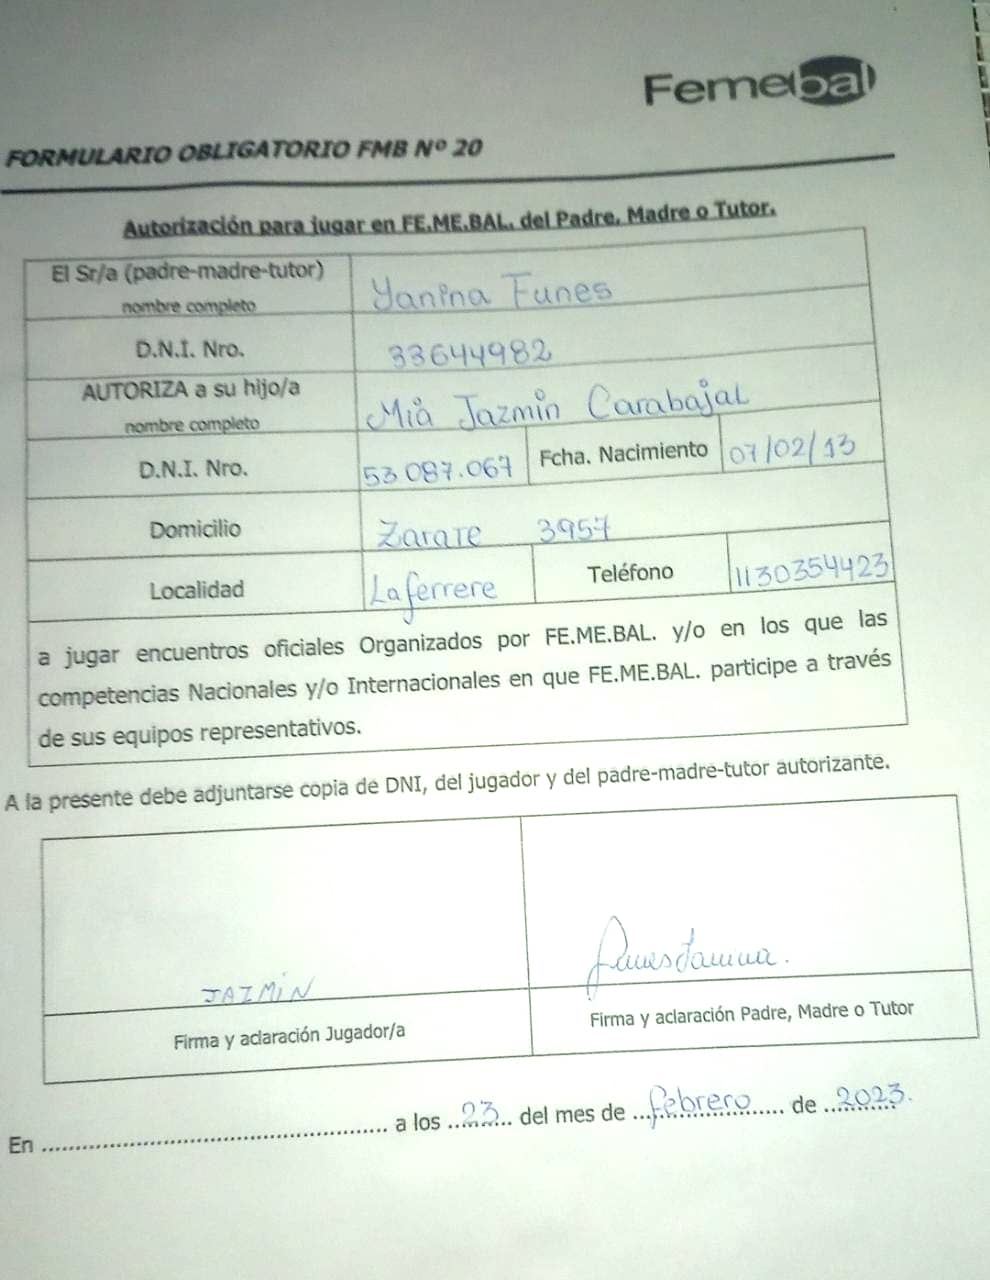 Femebal
FORMULARIO OBLIGATORIO FMB Nº 20
Autorización para jugar en FE.ME.BAL. del Padre, Madre o Tutor.
El Sr/a (padre-madre-tutor)
nombre completo
Yanina Funes
D.N.I. Nro.
33644982
AUTORIZA a su hijo/a
nombre completo
Mia Jazmin Carabajal
D.N.I. Nro.
53 087.067
Fcha. Nacimiento
07/02/13
Domicilio
Zarate 3957
Localidad
Laferrere
Teléfono
1130354423
a jugar encuentros oficiales Organizados por FE.ME.BAL. y/o en los que las
competencias Nacionales y/o Internacionales en que FE.ME.BAL. participe a través
de sus equipos representativos.
A la presente debe adjuntarse copia de DNI, del jugador y del padre-madre-tutor autorizante.
JAZMIN
Funes Yanina.
Firma y aclaración Jugador/a
Firma y aclaración Padre, Madre o Tutor
En ................................................ a los ..23.. del mes de ...febrero...... de ..2023.